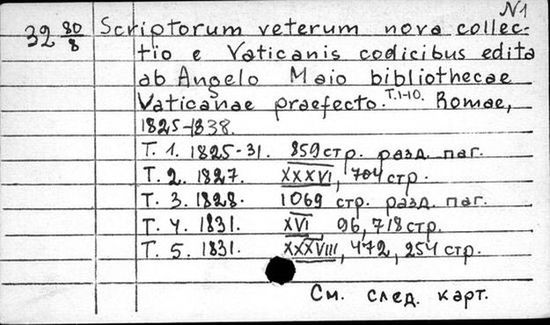 N1
32 80/8 Scriptorum veterum nova collec-
tio e Vaticanis codicibus edita
ab Angelo Maio bibliothecae
Vaticanae praefecto. T.1-10. Romae,
1825-1838.
Т. 1. 1825-31. 859 стр. разд. паг.
Т. 2. 1827. XXXVI, 704 стр.
Т. 3. 1828. 1069 стр. разд. паг.
Т. 4. 1831. XVI, 96, 718 стр.
Т. 5. 1831. XXXVIII, 472, 254 стр.
См. след. карт.